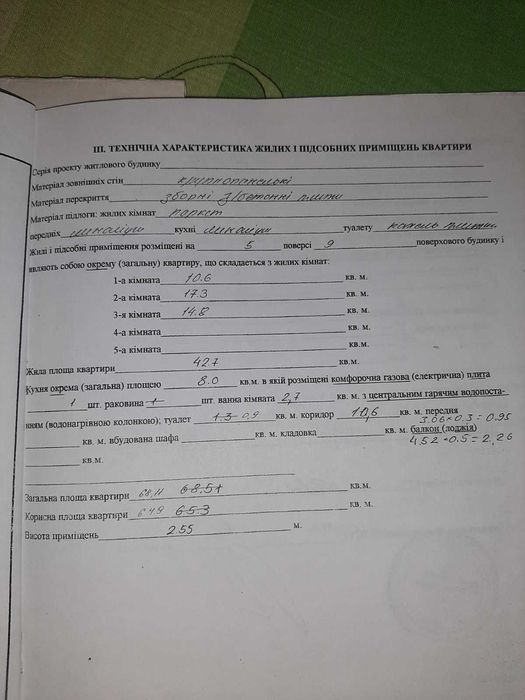 III. ТЕХНІЧНА ХАРАКТЕРИСТИКА ЖИЛИХ І ПІДСОБНИХ ПРИМІЩЕНЬ КВАРТИРИ
Серія проекту житлового будинку
Матеріал зовнішніх стін крупнопанельні
Матеріал перекриття зборні з/бетонні плити
Матеріал підлоги: жилих кімнат паркет
передніх лінолеум кухні лінолеум туалету плитки
Жилі і підсобні приміщення розміщені на 5 поверсі 9 поверхового будинку і
являють собою окрему (загальну) квартиру, що складається з жилих кімнат:
1-а кімната 10.6 кв. м.
2-а кімната 17.3 кв. м.
3-я кімната 14.8 кв. м.
4-а кімната кв. м.
5-а кімната кв. м.
Жила площа квартири 42.7 кв.м.
Кухня окрема (загальна) площею 8.0 кв.м. в якій розміщені комфорочна газова (електрична) плита
1 шт. раковина 1 шт. ванна кімната 2,7 кв. м. з центральним гарячим водопоста-
нням (водонагрівною колонкою); туалет 1.3 0,9 кв. м. коридор 10,6 кв. м. передня
3.06×0.3=0.95
кв. м. вбудована шафа кв. м. кладовка кв. м. балкон (лоджія)
4,52×0.5=2,26
кв.м.
Загальна площа квартири 68,11 68.51 кв.м.
Корисна площа квартири 64.9 65.3 кв. м.
Висота приміщень 2.55 м.